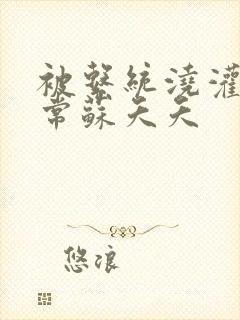 被繫統澆灌
常蘇天天
悠浪